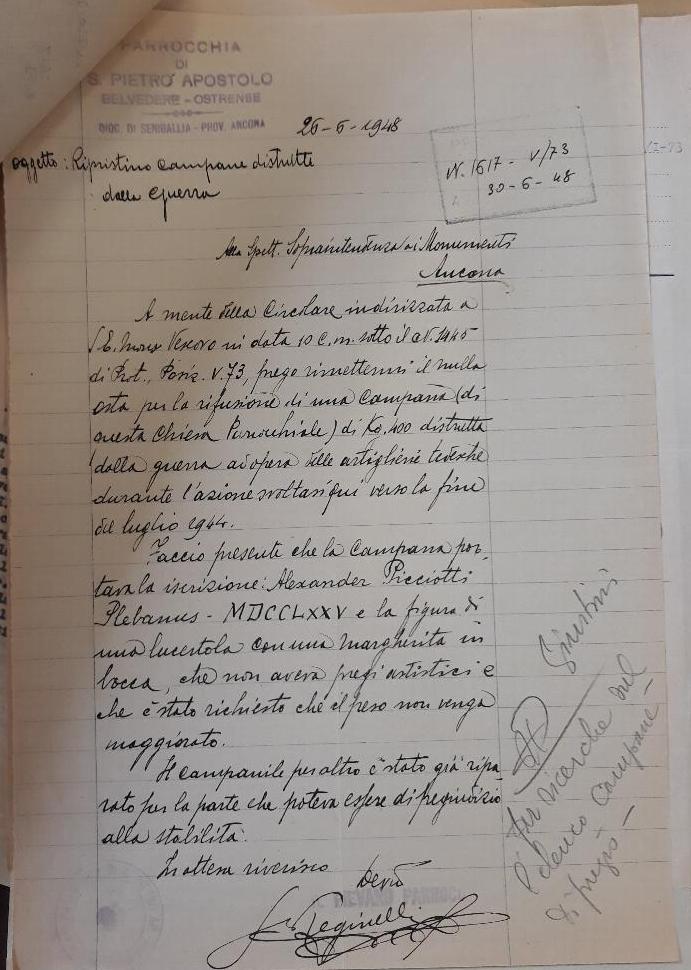 PARROCCHIA
DI
S. PIETRO APOSTOLO
BELVEDERE - OSTRENSE
DIOC. DI SENIGALLIA - PROV. ANCONA
26-6-1948
N. 1617 - V/73
30-6-48
oggetto: Ripristino campane distrutte
dalla guerra
Alla Spett. Sopraintendenza ai Monumenti
Ancona
A mente della Circolare indirizzata a
S.E. Mons. Vescovo in data 10 c.m. sotto il N. 1945
di Prot., Posiz. V. 73, prego rimettermi il nulla
osta per la rifusione di una campana (di
questa Chiesa Parrocchiale) di Kg. 400 distrutta
dalla guerra ad opera delle artiglierie tedesche
durante l'azione svoltasi qui verso la fine
del luglio 1944.
Faccio presente che la campana por-
tava la iscrizione: Alexander Picciotti
Plebanus - MDCCLXXV e la figura di
una lucertola con una margherita in
bocca, che non aveva pregi artistici e
che è stato richiesto che il peso non venga
maggiorato.
Il campanile peraltro è stato già ripa-
rato per la parte che poteva essere di pregiudizio
alla stabilità.
In attesa riverisco
Devmo
PARROCO
Reginelli
per ricerche sul
l'elenco campane
di pregio -